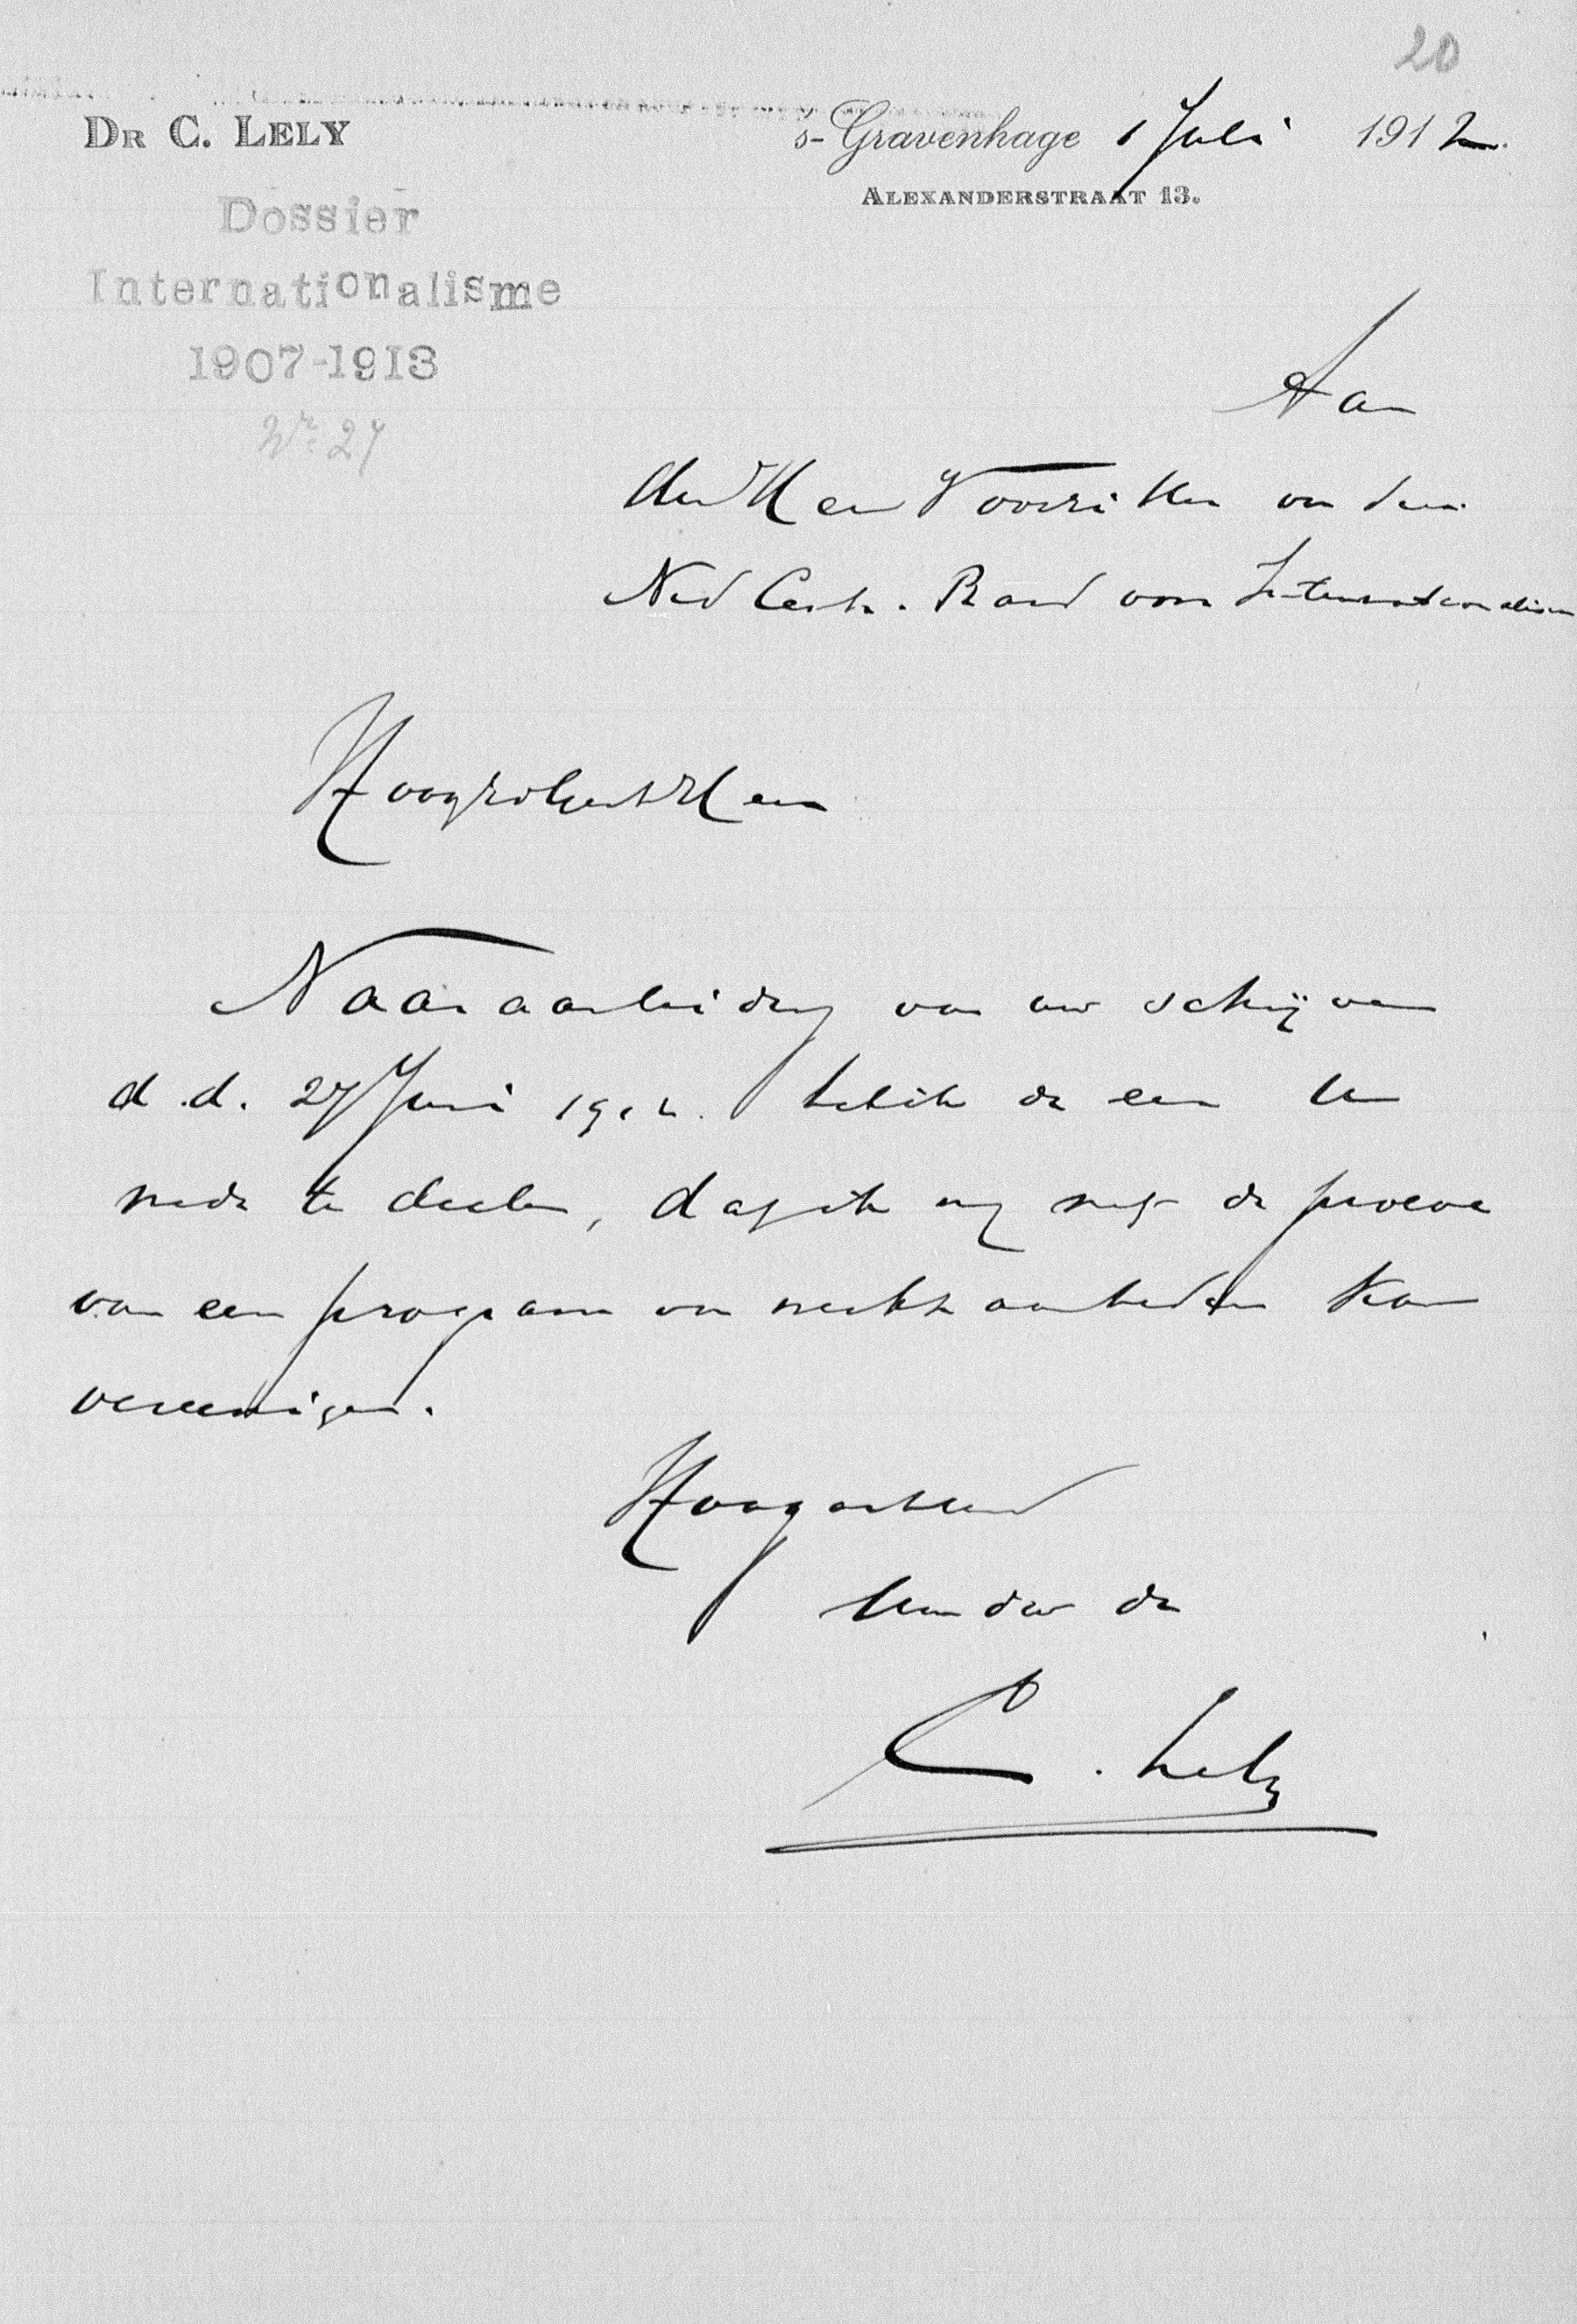 20
DR C. LELY
's-Gravenhage 1 Juli 1912.
ALEXANDERSTRAAT 13.
Dossier
Internationalisme
1907-1913
Nr. 27
Aan
den Heer Voorzitter van den
Ned Centr. Raad voor Internationalisme
Hooggeachte Heer
Naar aanleiding van uw schrijven
d.d. 27 Juni 1912. heb ik de eer U
mede te deelen, dat ik mij met de proeve
van een program van werkzaamheden kan
vereenigen.
Hoogachtend
Uw dw dr
C. Lely